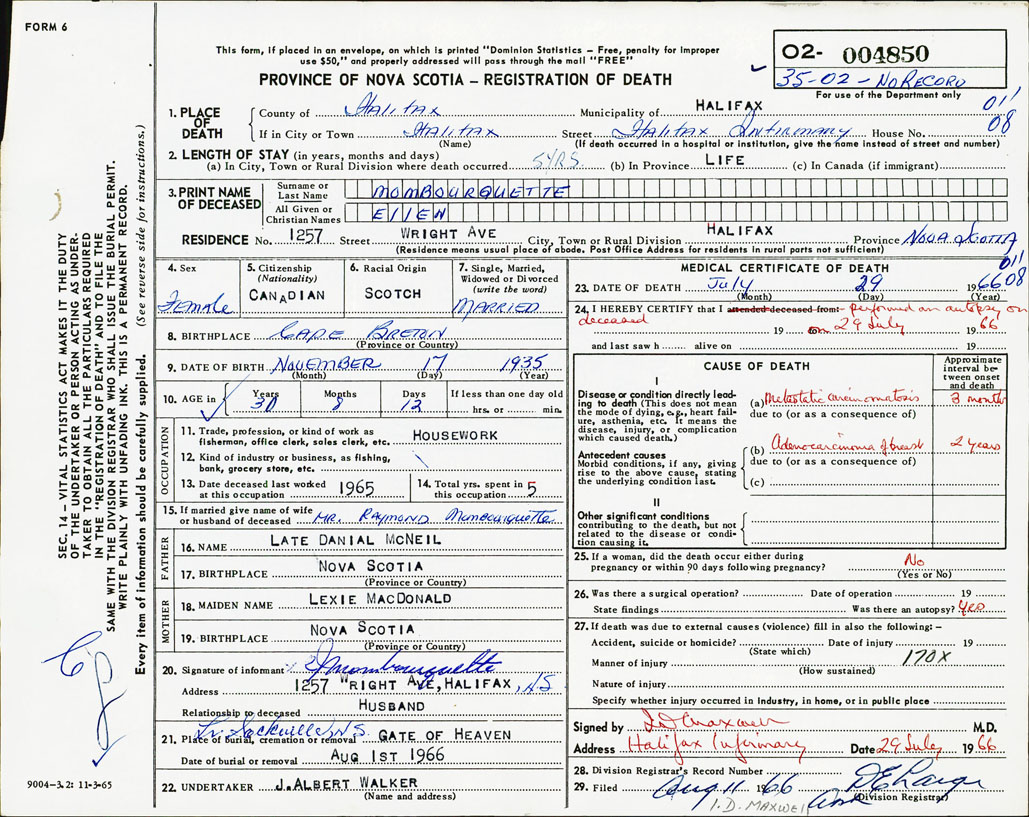 FORM 6
This form, if placed in an envelope, on which is printed "Dominion Statistics - Free, penalty for improper
use $50," and properly addressed will pass through the mail "FREE"
PROVINCE OF NOVA SCOTIA - REGISTRATION OF DEATH
O2- 004850
35-02-NO RECORD
For use of the Department only
011
08
1. PLACE OF DEATH
County of Halifax Municipality of HALIFAX
If in City or Town Halifax Street Halifax Infirmary House No.
(Name) (If death occurred in a hospital or institution, give the name instead of street and number)
2. LENGTH OF STAY (in years, months and days)
(a) In City, Town or Rural Division where death occurred 5 YRS. (b) In Province LIFE (c) In Canada (if immigrant)
3. PRINT NAME OF DECEASED
Surname or Last Name MOMBOURQUETTE
All Given or Christian Names ELLEN
RESIDENCE No. 1257 Street WRIGHT AVE City, Town or Rural Division HALIFAX Province NOVA SCOTIA
(Residence means usual place of abode. Post Office Address for residents in rural parts not sufficient)
4. Sex Female
5. Citizenship (Nationality) CANADIAN
6. Racial Origin SCOTCH
7. Single, Married, Widowed or Divorced (write the word) MARRIED
8. BIRTHPLACE CAPE BRETON
(Province or Country)
9. DATE OF BIRTH NOVEMBER 17 1935
(Month) (Day) (Year)
10. AGE in Years 30 Months 8 Days 12 If less than one day old hrs. or min.
OCCUPATION
11. Trade, profession, or kind of work as fisherman, office clerk, sales clerk, etc. HOUSEWORK
12. Kind of industry or business, as fishing, bank, grocery store, etc.
13. Date deceased last worked at this occupation 1965
14. Total yrs. spent in this occupation 5
15. If married give name of wife or husband of deceased MR. RAYMOND Mombourquette
FATHER
16. NAME LATE DANIAL MCNEIL
17. BIRTHPLACE NOVA SCOTIA
(Province or Country)
MOTHER
18. MAIDEN NAME LEXIE MACDONALD
19. BIRTHPLACE NOVA SCOTIA
(Province or Country)
20. Signature of informant Mombourquette
Address 1257 WRIGHT AVE, HALIFAX, NS
Relationship to deceased HUSBAND
21. Place of burial, cremation or removal Lr. Sackville, N.S. GATE OF HEAVEN
Date of burial or removal AUG 1ST 1966
22. UNDERTAKER J. ALBERT WALKER
(Name and address)
MEDICAL CERTIFICATE OF DEATH
011
08
23. DATE OF DEATH July 29 1966
(Month) (Day) (Year)
24. I HEREBY CERTIFY that I attended deceased from:- performed an autopsy on
deceased 19 on 29 July 1966
and last saw h alive on 19
CAUSE OF DEATH
Approximate interval between onset and death
I
Disease or condition directly leading to death (This does not mean the mode of dying, e.g., heart failure, asthenia, etc. It means the disease, injury, or complication which caused death.)
(a) Metastatic carcinomatosis 3 months
due to (or as a consequence of)
Antecedent causes
Morbid conditions, if any, giving rise to the above cause, stating the underlying condition last.
(b) Adenocarcinoma of breast 2 years
due to (or as a consequence of)
(c)
II
Other significant conditions
contributing to the death, but not related to the disease or condition causing it.
25. If a woman, did the death occur either during pregnancy or within 90 days following pregnancy? No
(Yes or No)
26. Was there a surgical operation? Date of operation 19
State findings Was there an autopsy? Yes
27. If death was due to external causes (violence) fill in also the following: -
Accident, suicide or homicide? Date of injury 19
(State which)
Manner of injury 170X
(How sustained)
Nature of injury
Specify whether injury occurred in industry, in home, or in public place
Signed by I D Maxwell M.D.
Address Halifax Infirmary Date 29 July 1966
28. Division Registrar's Record Number
29. Filed Aug 11 1966
(Division Registrar)
I.D. MAXWELL
SEC. 14 - VITAL STATISTICS ACT MAKES IT THE DUTY
OF THE UNDERTAKER OR PERSON ACTING AS UNDER-
TAKER TO OBTAIN ALL THE PARTICULARS REQUIRED
IN THE "REGISTRATION OF DEATH" AND TO FILE THE
SAME WITH THE DIVISION REGISTRAR WHO SHALL ISSUE THE BURIAL PERMIT.
WRITE PLAINLY WITH UNFADING INK. THIS IS A PERMANENT RECORD.
Every item of information should be carefully supplied. (See reverse side for instructions.)
9004-3.2: 11-3-65